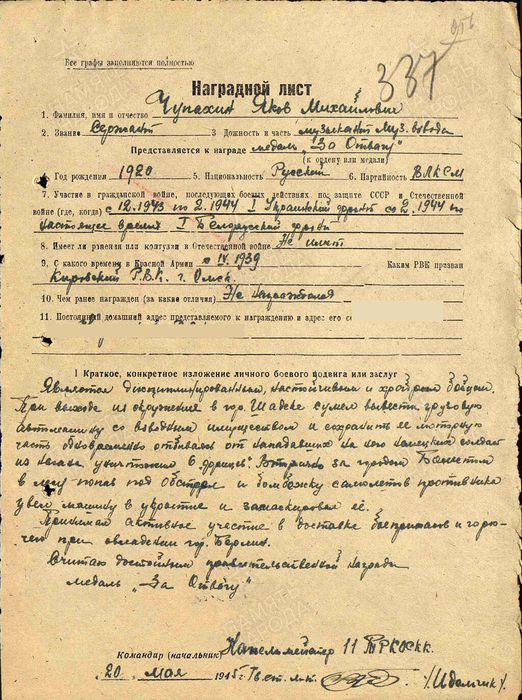 956
337
Все графы заполняются полностью
Наградной лист
1. Фамилия, имя и отчество Чупахин Яков Михайлович
2. Звание Сержант 3 Должность и часть музыкант муз. взвода
Представляется к награде медаль "За Отвагу"
(к ордену или медали)
4. Год рождения 1920 5. Национальность Русский 6. Партийность ВЛКСМ
7. Участие в гражданской войне, последующих боевых действиях по защите СССР и Отечественной
войне (где, когда) с 12.1943 по 2.1944 I Украинский фронт со 2.1944 по
настоящее время I Белорусский фронт
8. Имеет ли ранения или контузии в Отечественной войне Не имеет
9. С какого времени в Красной Армии с IV.1939 Каким РВК призван
Кировский Р.В.К. г. Омск.
10. Чем ранее награжден (за какие отличия) Не награждался
11. Постоянный домашний адрес представляемого к награждению и адрес его
I Краткое, конкретное изложение личного боевого подвига или заслуг
Является дисциплинированным, настойчивым и храбрым бойцом.
При выходе из окружения в гор. Шадеке сумел вывести грузовую
автомашину со взводным имуществом и сохранить ее моторную
часть одновременно отбиваясь от нападавших на него немецких солдат
из нагана уничтожил 6 фрицев. Вторично за городом
в лесу попав под обстрел и бомбежку самолетов противника
увел машину в укрытие и замаскировал её.
Принимал активное участие в доставке боеприпасов и горю-
чего при овладении гор. Берлин.
Считаю достойным правительственной награды
медаль "За Отвагу"
Капельмейстер 11 ТКРКОСКК.
Командир (начальник)
20 мая 1945 г.